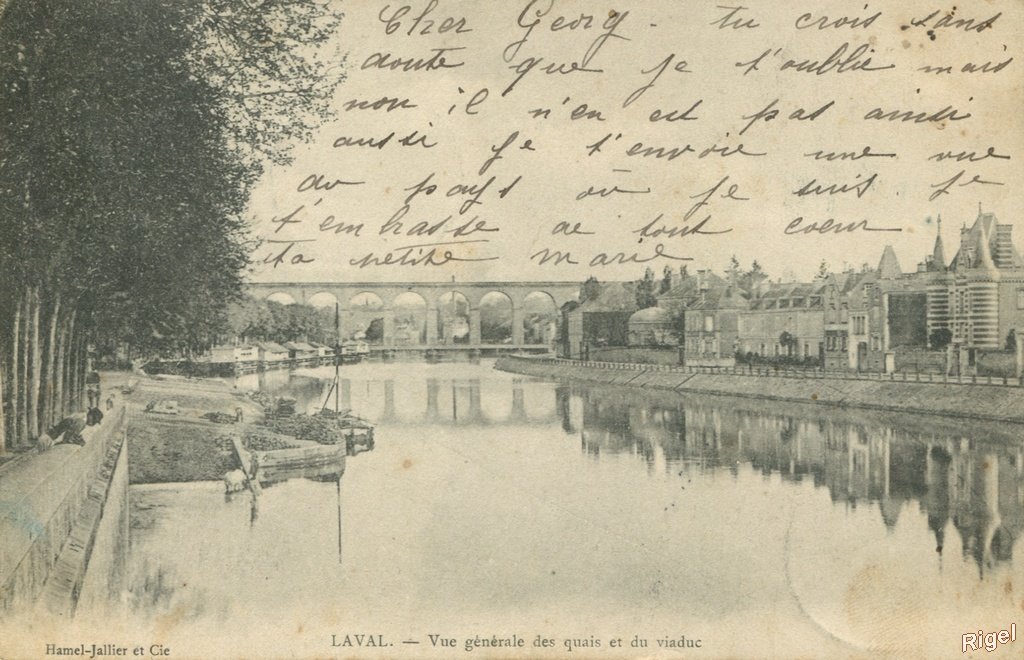 Cher Georg - tu crois sans
doute que je t'oublie mais
non il n'en est pas ainsi
aussi je t'envoie une vue
du pays où je suis je
t'embrasse de tout coeur
ta petite marie
LAVAL. — Vue générale des quais et du viaduc
Hamel-Jallier et Cie
Rigel